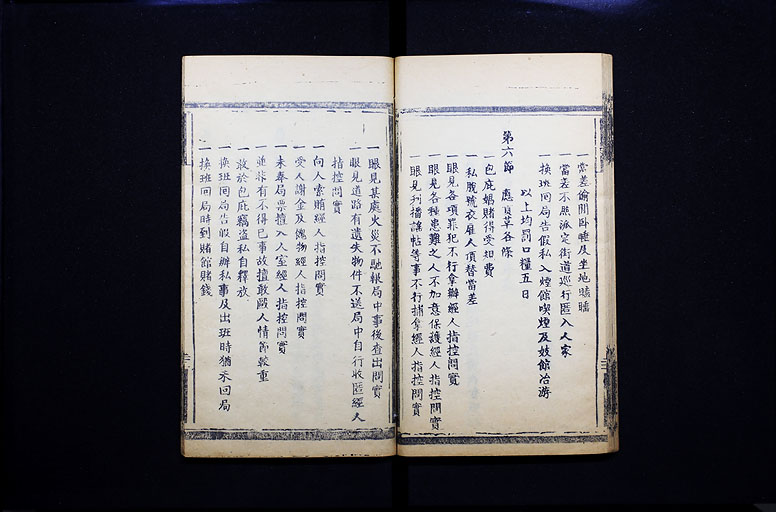 一當差偷閒卧睡及坐地瞌睡
一當差不照派定街道巡行匿入人家
一換班回局告假私入煙館喫煙及妓館冶游
以上均罰口糧五日
第六節 應責革各條
一包庇娼賭得受規費
一私脫號衣雇人頂替當差
一眼見各項罪犯不行拿辦經人指控問實
一眼見各種患難之人不加意保護經人指控問實
一眼見刊播謠帖等事不行捕拿經人指控問實
一眼見某處火災不馳報局中事後查出問實
一眼見道路有遺失物件不送局中自行收匿經人
指控問實
一向人索賄經人指控問實
一受人謝金及餽物經人指控問實
一未奉局票擅入人室經人指控問實
一並非有不得已事故擅敢毆人情節較重
一敢於包庇竊盜私自釋放
一換班回局告假自辦私事及出班時猶未回局
一換班回局時到賭館賭錢